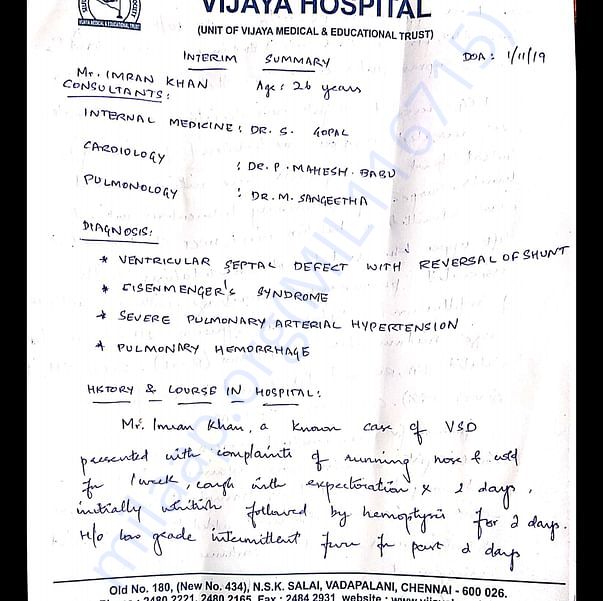 VIJAYA HOSPITAL
VIJAYA MEDICAL & EDUCATIONAL TRUST
(UNIT OF VIJAYA MEDICAL & EDUCATIONAL TRUST)
INTERIM SUMMARY
DOA: 1/11/19
Mr. IMRAN KHAN Age: 26 years
CONSULTANTS:
INTERNAL MEDICINE: DR. S. GOPAL
CARDIOLOGY : DR. P. MAHESH BABU
PULMONOLOGY : DR. M. SANGEETHA
DIAGNOSIS:
* VENTRICULAR SEPTAL DEFECT WITH REVERSAL OF SHUNT
* EISENMENGER'S SYNDROME
* SEVERE PULMONARY ARTERIAL HYPERTENSION
* PULMONARY HEMORRHAGE
HISTORY & COURSE IN HOSPITAL:
Mr. Imran Khan, a known case of VSD
presented with complaints of running nose & cold
for 1 week, cough with expectoration x 2 days,
initially whitish followed by hemoptysis for 2 days.
H/o low grade intermittent fever for past 2 days
Old No. 180, (New No. 434), N.S.K. SALAI, VADAPALANI, CHENNAI - 600 026.
2480 2221, 2480 2165, Fax : 2484 2931, website :
milaap.org(MIL116715)